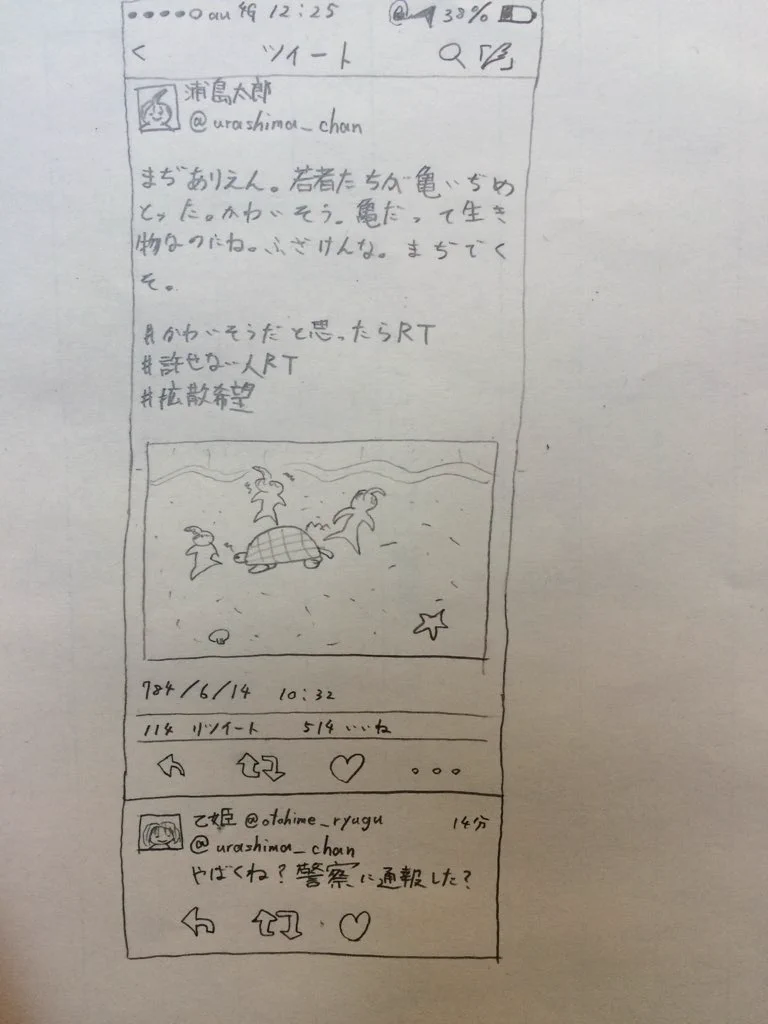 au 12:25 @ 38%
< ツイート
浦島太郎
@urashima_chan
まぢありえん。若者たちが亀いぢめ
とった。かわいそう。亀だって生き
物なのにね。ふざけんな。まぢでく
そ。
#かわいそうだと思ったらRT
#許せない人RT
#拡散希望
784/6/14 10:32
114 リツイート 514 いいね
乙姫 @otohime_ryugu 14分
@urashima_chan
やばくね?警察に通報した?